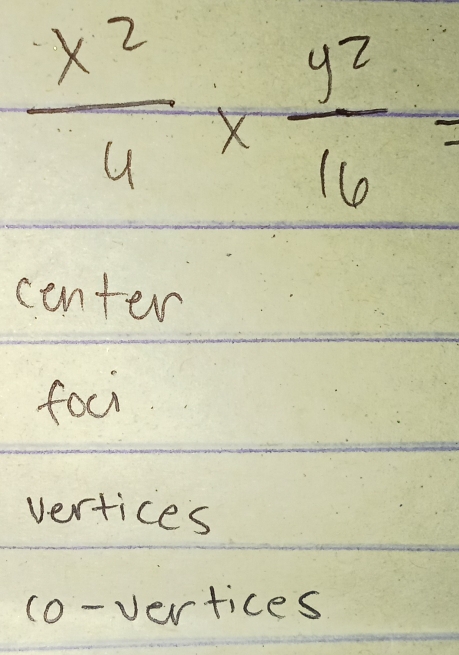 x²/4 x y²/16 =
center
foci
vertices
co-vertices